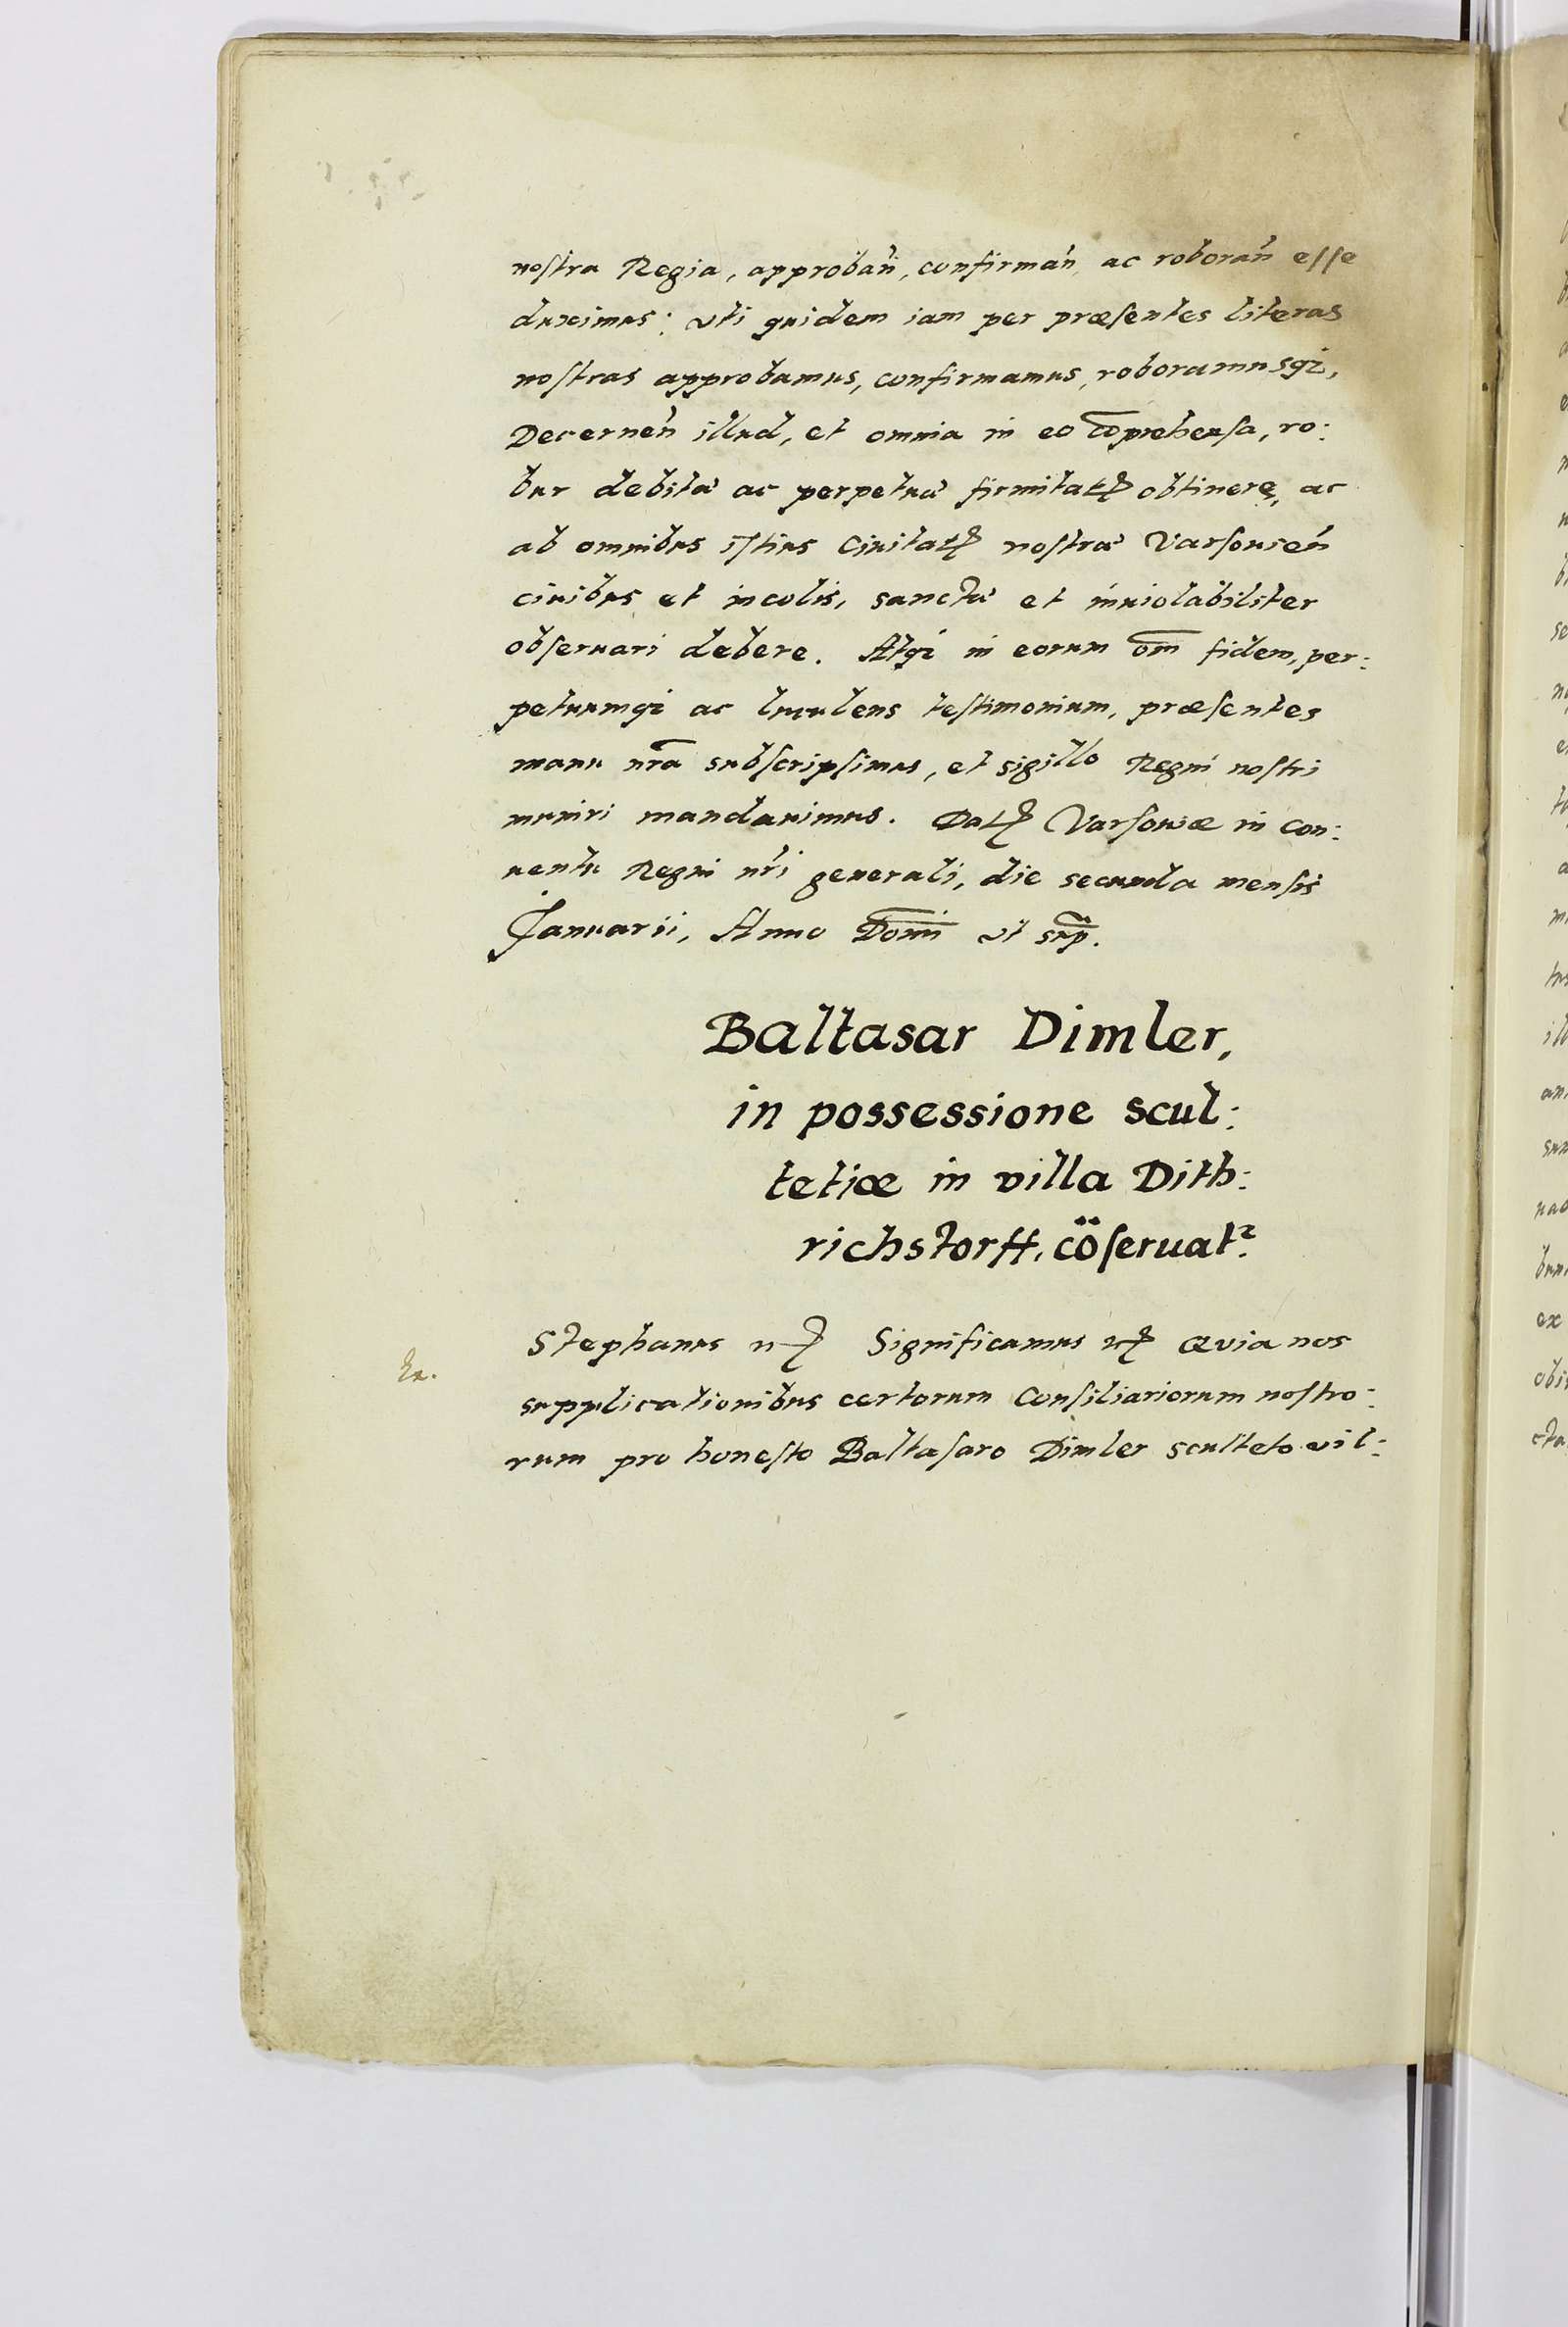 nostra Regia, approbañ, confirmañ, ac roborañ esse
duximus: vti quidem iam per præsentes literas
nostras approbamus, confirmamus, roboramusq;,
Decerneñ illud, et omnia in eo cōprehensa, ro:
bur debitæ ac perpetuæ firmitatꝭ obtinere, ac
ab omnibus istius Ciuitatꝭ nostræ Varsouień
ciuibus et incolis, sancte et inuiolabiliter
obseruari debere. Atq; in eorum om̄ fidem, per:
petuumq; ac luculens testimonium, præsentes
manu nr̄a subscripsimus, et sigillo Regni nostri
muniri mandauimus. Datꝭ Varsowiæ in con:
uentu Regni nr̄i generali, die secunda mensis
Januarii, Anno Domī vt sup̄.
Baltasar Dimler,
in possessione scul:
tetiæ in villa Dith:
richstorff, cōseruatr.
Stephanus Significamus nos
supplicationibus certorum Consiliariorum nostro:
rum pro honesto Baltasaro Dimler sculteto vil: